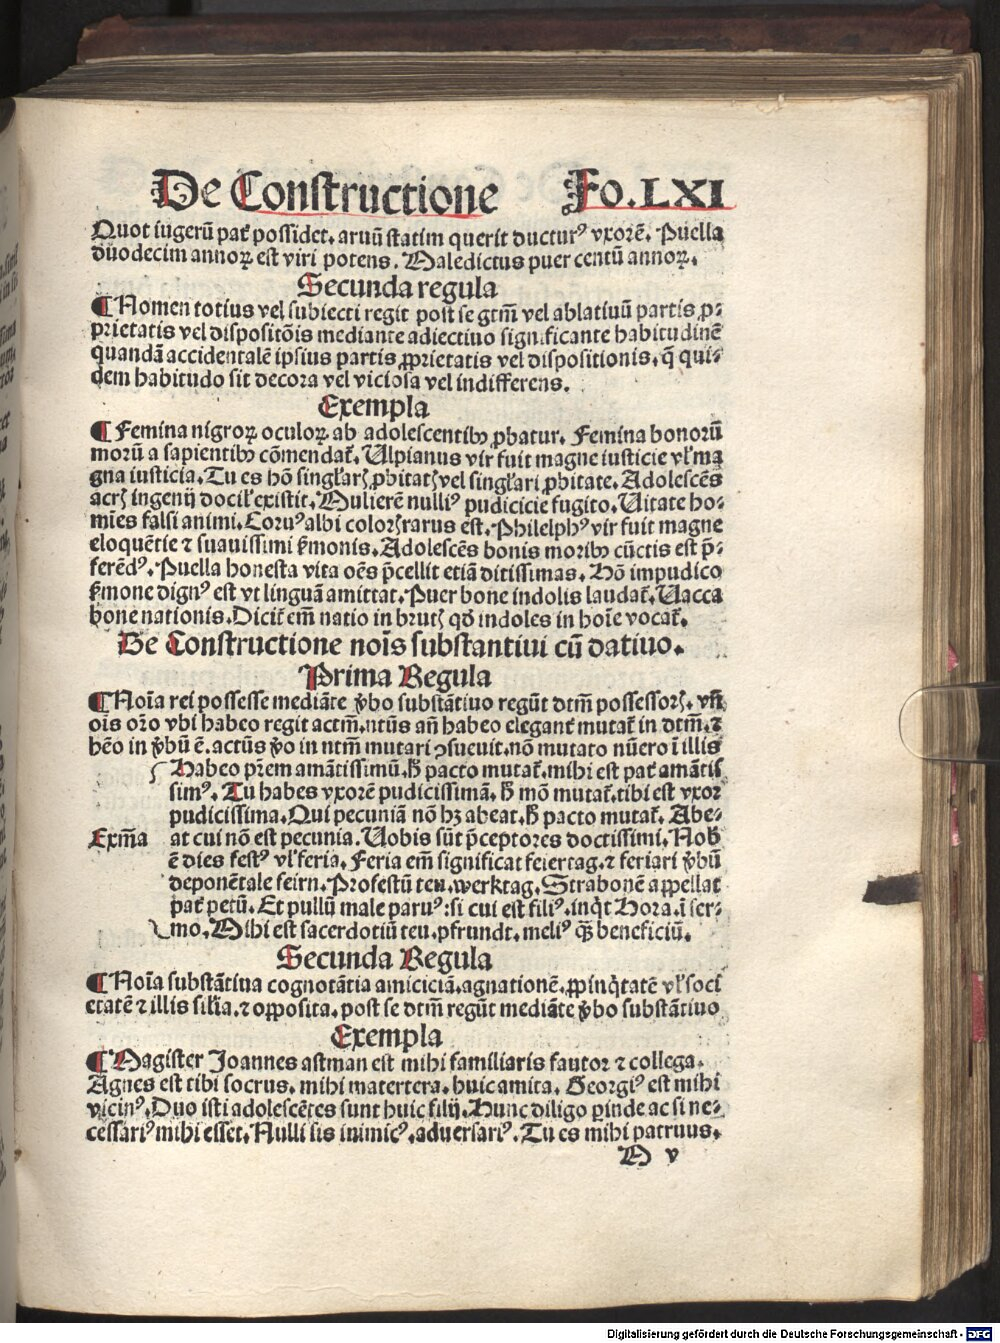 De Constructione Fo.LXI
Quot iugerū pat᷑ possidet. aruū statim querit ductur⁹ vxorē. Puella
duodecim annoꝝ est viri potens. Maledictus puer centū annoꝝ.
Secunda regula
¶ Nomen totius vel subiecti regit post se gtm̄ vel ablatiuū partis ꝓ⸗
prietatis vel dispositōis mediante adiectiuo significante habitudinē
quandā accidentalē ipsius partis ꝓprietatis vel dispositionis. q̄ qui⸗
dem habitudo sit decora vel viciosa vel indifferens.
Exempla
¶ Femina nigroꝝ oculoꝝ ab adolescentibꝰ ꝓbatur. Femina bonorū
morū a sapientibꝰ cōmendat᷑. Ulpianus vir fuit magne iusticie vl᷑ ma
gna iusticia. Tu es hō singl᷑arꝭ ꝓbitatꝭ vel singl᷑ari ꝓbitate. Adolescēs
acrꝭ ingenij docil᷑ existit. Mulierē nulli⁹ pudicicie fugito. Uitate ho⸗
mīes falsi animi. Coru⁹ albi colorꝭ rarus est. Philelph⁹ vir fuit magne
eloquētie ⁊ suauissimi ẜmonis. Adolescēs bonis moribꝰ cūctis est p̄⸗
ferēd⁹. Puella honesta vita oēs p̄cellit etiā ditissimas. Hō impudico
ẜmone dign⁹ est vt linguā amittat. Puer bone indolis laudat᷑. Uacca
bone nationis. Dicit᷑ em̄ natio in brutꝭ qd̄ indoles in hoīe vocat᷑.
De Constructione noīs substantiui cū datiuo.
Prima Regula
¶ Noīa rei possesse mediāte v̄bo substātiuo regūt dtm̄ possessorꝭ. vn̄
oīs or̄o vbi habeo regit actm̄. ntūs an̄ habeo elegant᷑ mutat᷑ in dtm̄. ⁊
hēo in v̄bū ē. actūs v̄o in ntm̄ mutari ꝯsueuit. nō mutato nūero ī illis
Habeo pr̄em amātissimū. h̄ pacto mutat᷑. mihi est pat᷑ amātis
sim⁹. Tu habes vxorē pudicissimā. h̄ mō mutat᷑. tibi est vxor
pudicissima. Qui pecuniā nō hꝫ abeat. h̄ pacto mutat᷑. Abe⸗
Exm̄a at cui nō est pecunia. Uobis sūt p̄ceptores doctissimi. Nob̄
ē dies fest⁹ vl᷑ feria. Feria em̄ significat feiertag. ⁊ feriari v̄bū
deponētale feirn. Profestū teu. werktag. Strabonē appellat
pat᷑ petū. Et pullū male paru⁹: si cui est fili⁹. inq̇t Hora. ī ser⸗
mo. Mihi est sacerdotiū teu. pfrundt. meli⁹ qꝫ beneficiū.
Secunda Regula
¶ Noīa substātiua cognotātia amiciciā. agnationē. ꝓpinq̇tatē vl᷑ soci
etatē ⁊ illis sil᷑ia. ⁊ opposita. post se dtm̄ regūt mediāte v̄bo substātiuo
Exempla
¶ Magister Joannes astman est mihi familiaris fautor ⁊ collega.
Agnes est tibi socrus. mihi matertera. huic amita. Georgi⁹ est mihi
vicin⁹. Duo isti adolescētes sunt huic filij. Hunc diligo ꝑinde ac si ne⸗
cessari⁹ mihi esset. Nulli sis inimic⁹. aduersari⁹. Tu es mihi patruus.
M v
Digitalisierung gefördert durch die Deutsche Forschungsgemeinschaft - DFG